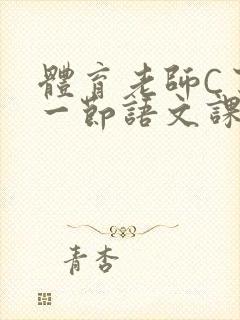 體育老師C
一節語文課
青杏